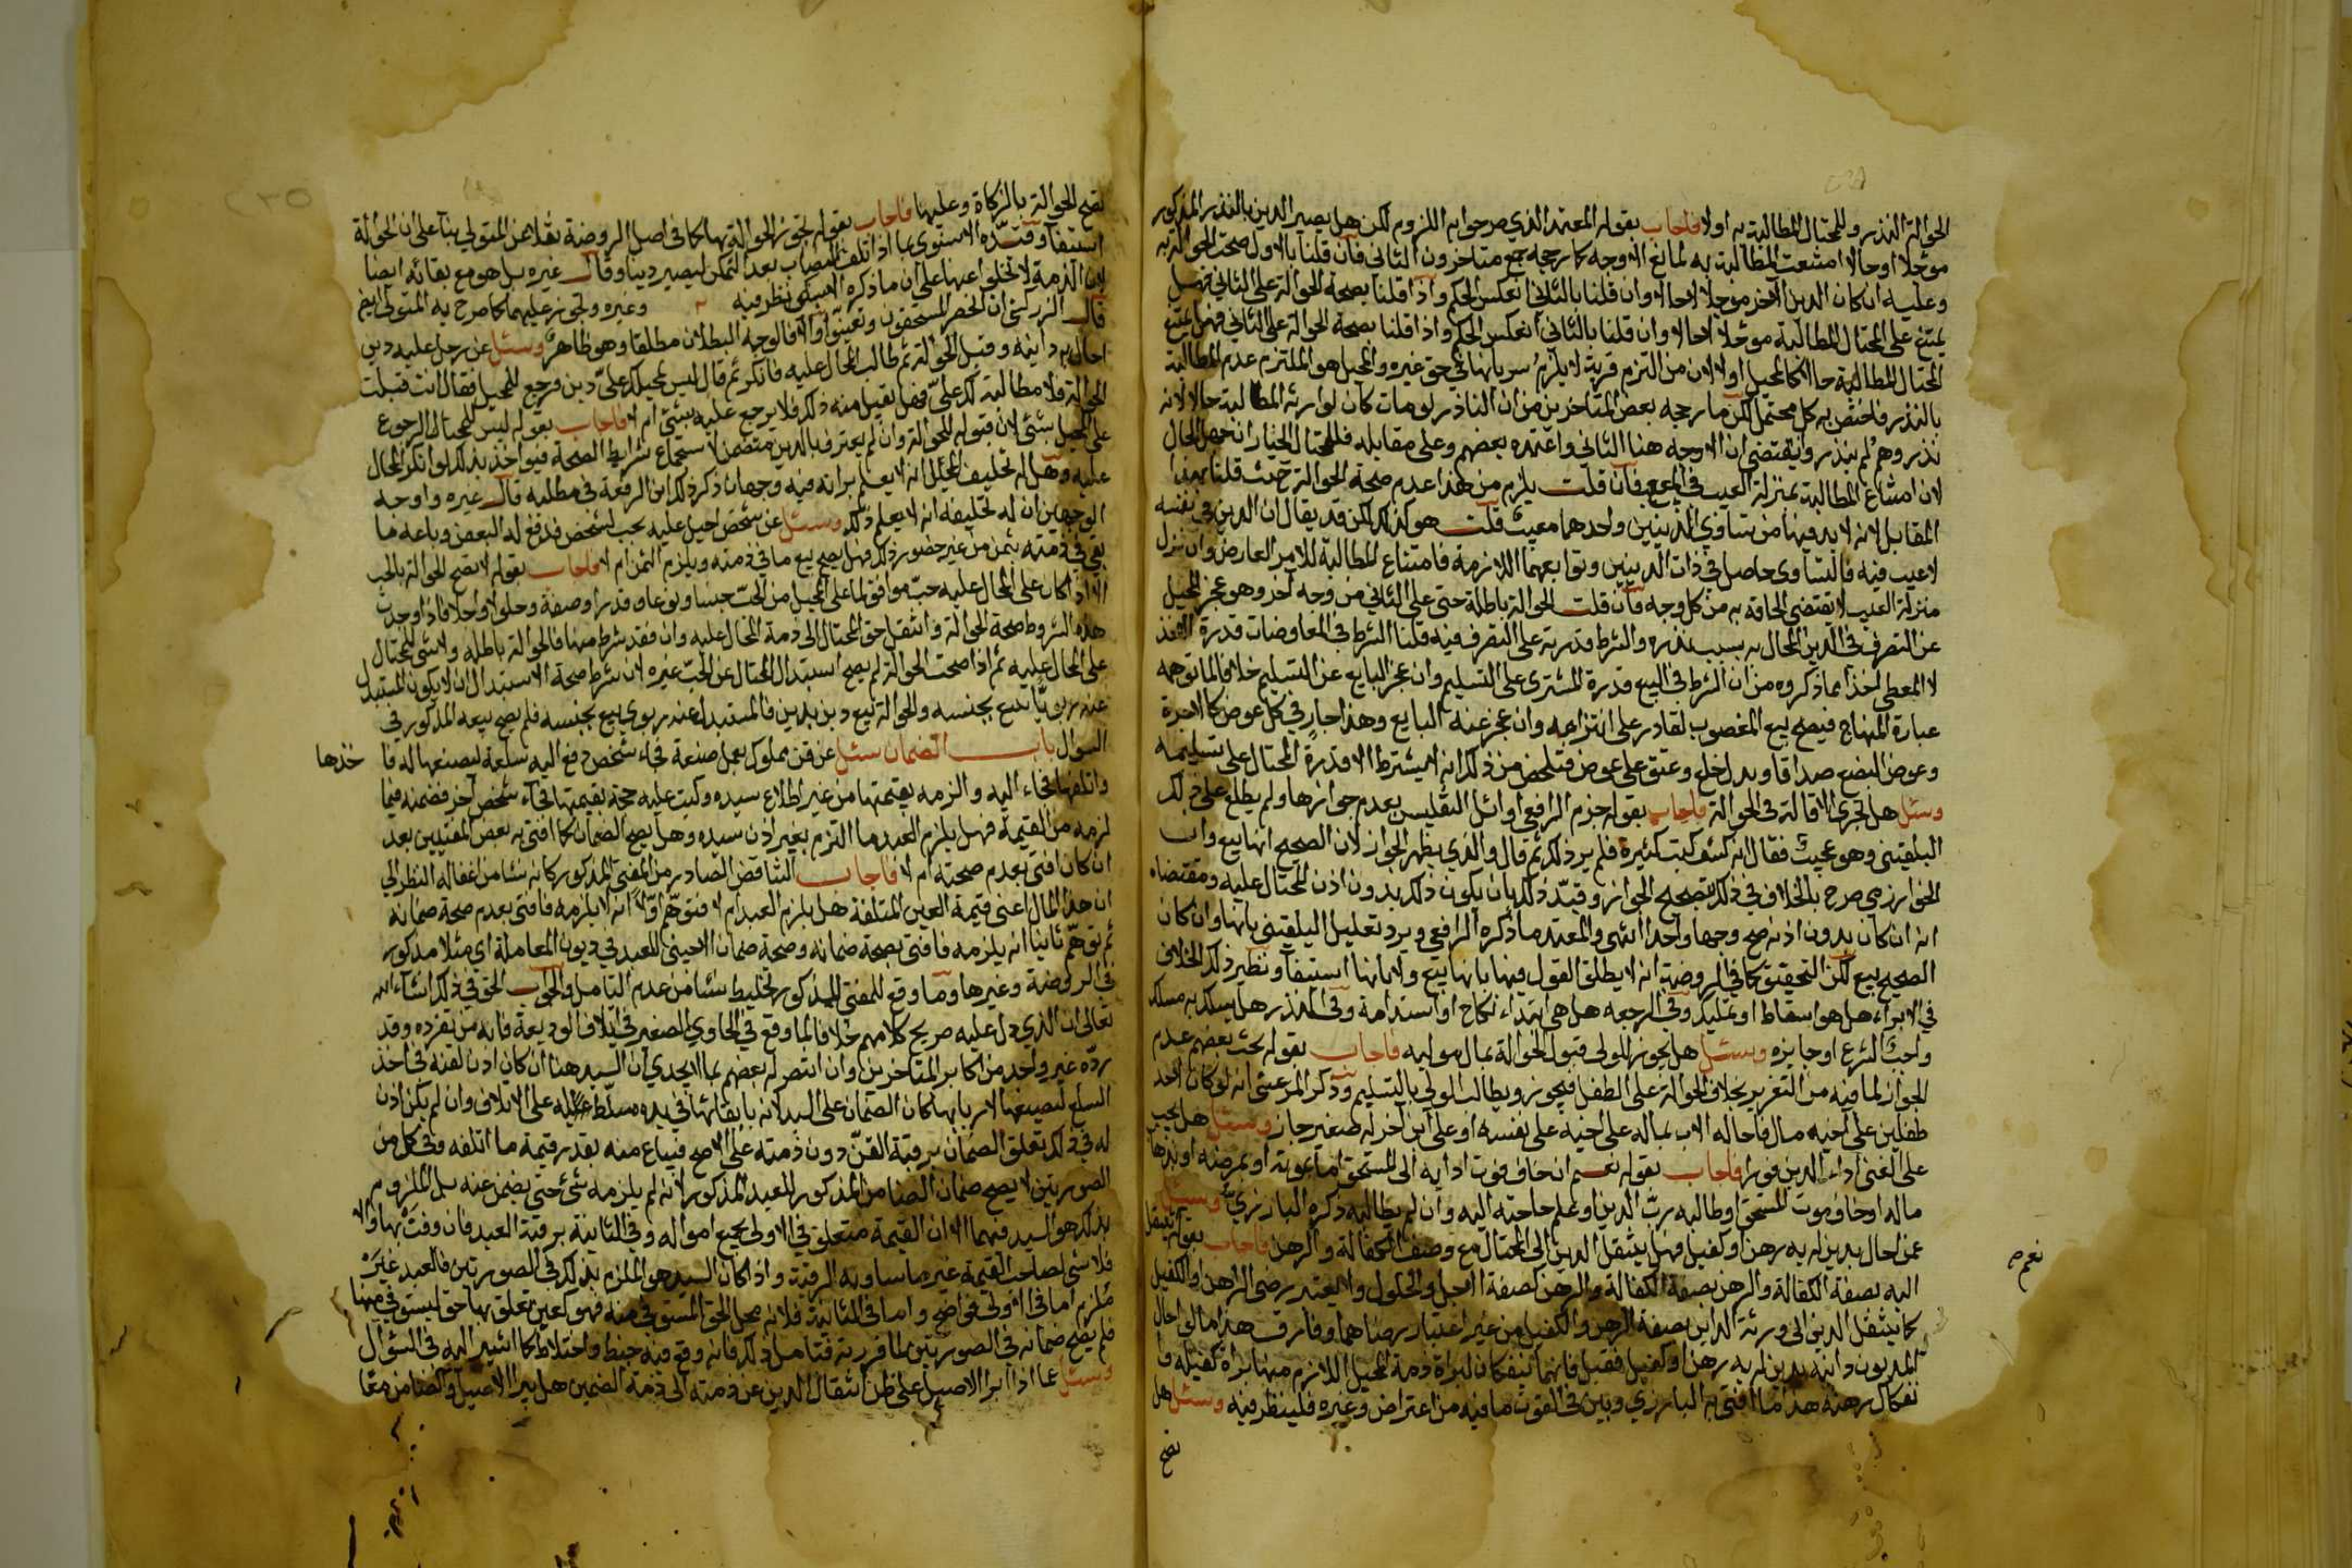 الحوالة النذر وللمحتال المطالبة به اولا فاجاب بقوله المعتمد الذي صرحوا به اللزوم لكن هل يصير الدين بالنذر المذكور
موجلا اوحالا امتنعت المطالبة به لمانع الاوجه كما رجحه جمع متاخرون الثاني فان قلنا بالاول صحت الحوالة به
وعليه ان كان الدين الاخر موجلا لاحالا وان قلنا بالثاني انعكس الحكم واذا قلنا بصحة الحوالة على الثاني فهل
يمتنع على المحتال المطالبة موجلا لاحالا وان قلنا بالثاني انعكس الحكم واذا قلنا بصحة الحوالة على الثاني فهل يمتنع
المحتال المطالبة حالا كالمحيل اولا لان من التزم قربة لا يلزم سريانها في حق غيره والمحيل هو الملتزم عدم المطالبة
بالنذر فاختص به كل محتمل لكن ما رجحه بعض المتاخرين من ان الناذر لو مات كان لوارثه المطالبة حالا لانه
نذر وهم لم ينذروا يقتضي ان الاوجه هنا الثاني واعتمده بعضهم وعلى مقابله فللمحتال الخيار ان جهل الحال
لان امتناع المطالبة بمنزلة العيب في المبيع فان قلت يلزم من هذا عدم صحة الحوالة حيث قلنا بهذا
المقابل لانه لا بد فيها من تساوي الدينين واحدهما معيب قلت هو كذلك لكن قد يقال ان الدين في نفسه
لا عيب فيه فالتساوي حاصل في ذات الدينين وتوابعهما اللازمة فامتناع المطالبة للامر العارض وان نزل
منزلة العيب لا يقتضي الحاقه به من كل وجه فان قلت الحوالة باطلة حتى على الثاني من وجه آخر وهو عجز المحيل
عن التصرف في الدين المحال به بسبب نذره والشرط قدرته على التصرف فيه قلنا الشرط في المعاوضات قدرة الاخذ
لا المعطي اخذا مما ذكروه من ان الشرط في البيع قدرة المشتري على التسليم وان عجز البايع عن التسليم خلافا لما توهمه
عبارة المنهاج فيصح بيع المغصوب لقادر على انتزاعه وان عجز عنه البايع وهذا جار في كل عوض كالاجرة
وعوض البضع صداقا وبدل خلع وعتق على عوض فتلخص من ذلك انه لا يشترط الا قدرة المحتال على تسليمه
وسئل هل تجري الاقالة في الحوالة فاجاب بقوله جزم الرافعي اوائل التفليس بعدم جوازها ولم يطلع على ذلك
البلقيني وهو عجيب فقال انه كشف كتب كثيرة فلم ير ذلك ثم قال والذي يظهر الجواز لان الصحيح انها بيع وان
الخوارزمي صرح بالخلاف في ذلك بتصحيح الجواز وقيد ذلك بان يكون ذلك بدون اذن المحتال عليه ومقتضاه
انه ان كان بدون اذنه صح وجها واحدا انتهى والمعتمد ما ذكره الرافعي ويرد تعليل البلقيني بانها وان كان
الصحيح بيع لكن التحقيق كما في الروضة انه لا يطلق القول فيها بانها بيع ولا بانها استيفا ونظير ذلك الخلاف
في الابراء هل هو اسقاط او تمليك وفي الرجعه هل هي ابتداء نكاح او استدامة وفي النذر هل يسلك به مسلك
واجب الشرع او جايزه وسئل هل يجوز للولي قبول الحوالة بمال موليه فاجاب بقوله بحث بعضهم عدم
الجواز لما فيه من التغرير بخلاف الحوالة على الطفل فيجوز ويطالب الولي بالتسليم وذكر المرعشي انه لو كان لاحد
طفلين على اخيه مال فاحاله الاب بماله على اخيه على نفسه او على ابن آخر له صغير جاز وسئل هل يجب
على الغني اداء الدين فورا فاجاب بقوله نعم ان خاف فوت ادايه الى المستحق اما بموته او بمرضه او بذهاب
ماله او خاف موت المستحق او طالبه رب الدين او علم حاجته اليه وان لم يطالبه ذكره البارزي وسئل
عمن احال بدين له به رهن او كفيل فهل ينتقل الدين الى المحتال مع وصف الكفالة والرهن فاجاب بقوله ينتقل
اليه بصفة الكفالة والرهن بصفة الكفالة والرهن كصفة الاجل والحلول ولا يعتبر رضى الراهن او الكفيل
كما ينتقل الدين الى ورثة الداين بصفة الرهن والكفيل من غير اعتبار رضاهما وفارق هذا ما لو احال
المديون داينه بدين له به رهن او كفيل فقبل فانهما ينفكان لبراة ذمة المحيل اللازم منها براة كفيله وا
نفكاك رهنه هذا ما افتى به البارزي وبين في الفوت ما فيه من اعتراض وغيره فلينظر فيه وسئل هل
نعم
تصح
تصح الحوالة بالزكاة وعليها فاجاب بقوله تجوز الحوالة بها كما في اصل الروضة نقلا عن المتولي بنآ على ان الحوالة
استيفا وقيده الاسنوي بما اذا تلف النصاب بعد التمكن ليصير دينا وقال غيره بل هو مع بقائه ايضا
لان الذمة لا تخلوا عنها على ان ما ذكره السبكي نظر فيه وغيره وتجوز عليهما كما صرح به المتولي ايضا
قال الزركشي ان انحصر المستحقون وتعينوا والا فالوجه البطلان مطلقا وهو ظاهر وسئل عن رجل عليه دين
احال به داينه وقبل الحوالة ثم طالب المحال عليه فانكر ثم قال ليس لمحيلك علي دين فرجع للمحيل فقال انت قبلت
الحوالة فلا مطالبة لك علي فهل يقبل منه ذلك فلا يرجع عليه بشي ام لا فاجاب بقوله ليس للمحتال الرجوع
على المحيل بشي لان قبوله للحوالة وان لم يعترف بالدين متضمن لاستجماع شرايط الصحة فيواخذ بذلك لو انكر المحال
عليه وهل له تحليف المحيل انه لا يعلم براته فيه وجهان ذكر ذلك ابن الرفعة في مطلبه قال غيره واوجه
الوجهين ان له تحليفه انه لا يعلم ذلك وسئل عن شخص احيل عليه بحب لشخص فدفع له البعض وباعه ما
بقي في ذمته بثمن من غير حضور ذلك فهل يصح بيع ما في ذمته ويلزم الثمن ام لا فاجاب بقوله لا تصح الحوالة بالحب
الا اذا كان على المحال عليه حب موافق لما على المحيل من الحب جنسا ونوعا وقدرا وصفة وحلولا واجلا فاذا وجدت
هذه الشروط صحة الحوالة وانتقل حق المحتال الى ذمة المحال عليه وان فقد شرط منها فالحوالة باطله ولا شي للمحتال
على المحال عليه ثم اذا صحت الحوالة لم يصح استبدال المحتال عن الحب غيره لان شرط صحة الاستبدال ان لا يكون المستبدل
عنه ربويا بيع بجنسه والحوالة بيع دين بدين فالمستبدل عنه ربوي بيع بجنسه فلم يصح بيعه المذكور في
السوال باب الضمان سئل عن قن مملوك يعمل صنعة فجاء شخص دفع اليه سلعة ليصنعها له فا
خذها
واتلفها فجاء اليه والزمه بقيمتها من غير اطلاع سيده وكتب عليه حجة بقيمتها فجآء شخص آخر فضمنه فيما
لزمه من القيمة فهل يلزم العبد ما التزم بغير اذن سيده وهل يصح الضمان كما افتى به بعض المفتيين بعد
ان كان افتى بعدم صحته ام لا فاجاب التناقض الصادر من المفتي المذكور كانه نشا من اغفاله النظر الى
ان هذا المال اعني قيمة العين المتلفة هل يلزم العبد ام لا فتوهم اولا انه لا يلزمه فافتى بعدم صحة ضمانه
ثم توهم ثانيا انه يلزمه فافتى بصحة ضمانه وصحة ضمان الاجنبي للعبد في ديون المعاملة اي مثلا مذكور
في الروضة وغيرها وما وقع للمفتي المذكور تخليط نشا من عدم التامل والجواب الحق في ذلك انشاء الله
تعالى ان الذي دل عليه صريح كلامهم خلافا لما وقع في الحاوي الصغير في اتلاف الوديعة فانه من تفرده وقد
رده غير واحد من اكابر المتاخرين وان انتصر له بعضهم بما لا يجدي ان السيد هنا ان كان اذن لقنه في اخذ
السلع ليصنعها لاربابها كان الضمان على السيد لانه بابقائها في يده مسلط عليه على الاتلاف وان لم يكن اذن
له في ذلك تعلق الضمان برقبة القن دون ذمته على الاصح فيباع منه بقدر قيمة ما اتلفه وفي كل من
الصورتين لا يصح ضمان الضامن المذكور للعبد المذكور لانه لم يلزمه شي حتى يضمن عنه بل الملزوم
بذلك هو السيد فيهما الا ان القيمة متعلق في الاولى بجميع امواله وفي الثانية برقبة العبد فان وفت بها والا
فلا شي لصاحب القيمة غير ما ساوته الرقبة واذا كان السيد هو الملزم بذلك في الصورتين فالعبد غير
ملزم اما في الاولى فواضح واما في الثانية فلانه محل الحق المستوفى منه فهو كعين تعلق بها حق ليستوفي منها
فلم يصح ضمانه في الصورتين لما قررته فتامل ذلك فانه وقع فيه خبط واختلاط كما اشير اليه في السؤال
وسئل عما اذا ابرا الاصيل على ظن انتقال الدين عن ذمته الى ذمة الضمين هل يبرا الاصيل والضامن معا